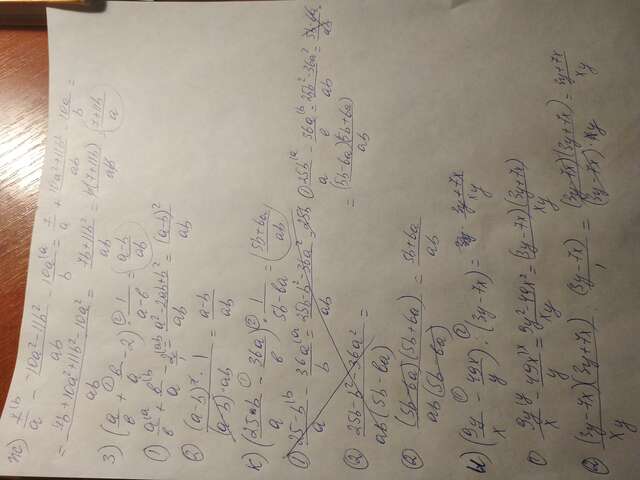 ж) 7b/a - (-10a²-11b²)/ab - 10a/b = 7/a + (10a²+11b²)/ab - 10a/b =
= (7b+10a²+11b²-10a²)/ab = (7b+11b²)/ab = b(7+11b)/ab = (7+11b)/a
з) (a/b + b/a - 2) · 1/(a-b) = (a-b)/ab
① a/b + b/a - 2 = (a²-2ab+b²)/ab = (a-b)²/ab
② (a-b)² · 1/(a-b)·ab = (a-b)/ab
к) (25b/a - 36a/b) · 1/(5b-6a) = (5b+6a)/ab
① 25b/a - 36a/b = (25b²-36a²)/ab
② (25b-b²-36a²)/ab(5b-6a) =
① 25b/a - 36a/b = (25b²-36a²)/ab
= (5b-6a)(5b+6a)/ab
② (5b-6a)(5b+6a)/ab(5b-6a) = (5b+6a)/ab
и) (9y/x - 49x/y) : (3y-7x) = (3y+7x)/xy
① 9y/x - 49x/y = (9y²-49x²)/xy = (3y-7x)(3y+7x)/xy
② (3y-7x)(3y+7x)/xy : (3y-7x)/1 = (3y-7x)(3y+7x)/(3y-7x)·xy = (3y+7x)/xy